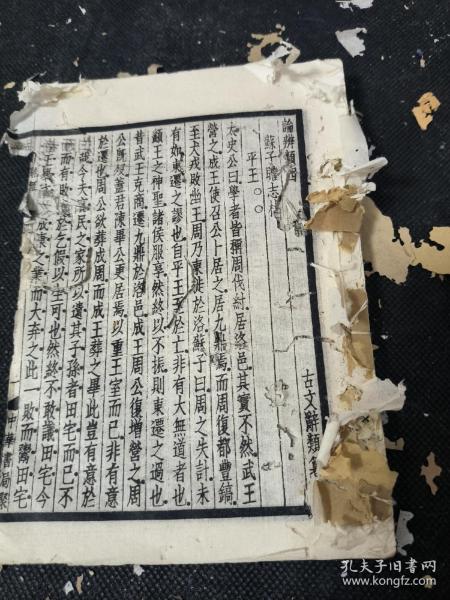 論辨類四
蘇子瞻志林
平王〇〇
太史公曰學者皆稱周伐紂居洛邑其實不然武王
營之成王使召公卜居之居九鼎焉而周復都豐鎬
至犬戎敗幽王周乃東徙於洛蘇子曰周之失計未
有如東遷之謬也自平王至於亡非有大無道者也
頿王之神聖諸侯服享然終以不振則東遷之過也
昔武王克商遷九鼎於洛邑成王周公復增營之周
公既歿蓋君陳畢公更居焉以重王室而已非有意
於遷也周公欲葬成周而成王葬之畢此豈有意於
哉今夫富民之家所以遺其子孫者田宅而已不
而有敗至於乞假以生可也然終不敢議田宅今
王 成康之業而大弃之此一敗而鬻田宅
古文辭類
中華書局聚
孔夫子旧书网
www.kongfz.com